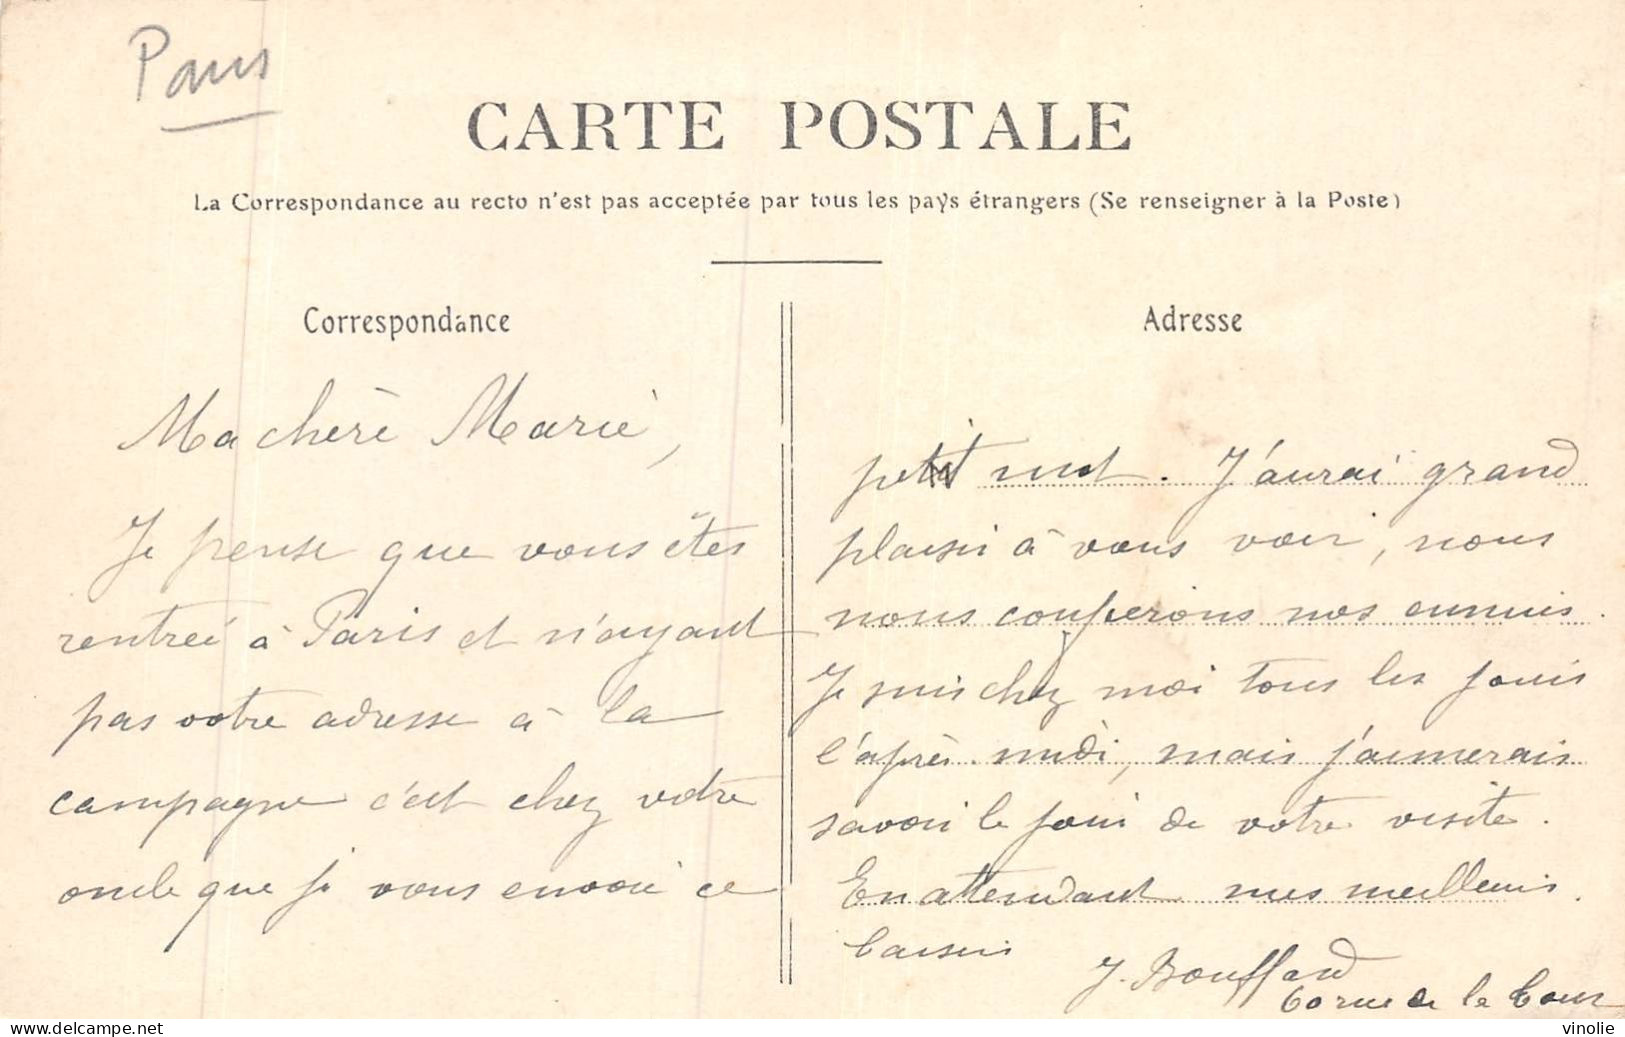 Paris
CARTE POSTALE
La Correspondance au recto n'est pas acceptée par tous les pays étrangers (Se renseigner à la Poste)
Correspondance
Ma chère Marie,
Je pense que vous êtes
rentrée à Paris et n'ayant
pas votre adresse à la
campagne c'est chez votre
oncle que je vous envoie ce
Adresse
petit mot. J'aurai grand
plaisir à vous voir, nous
nous couperons nos ennuis.
Je suis chez moi tous les jours
l'après-midi, mais j'aimerais
savoir le jour de votre visite.
En attendant mes meilleurs
baisers
J. Bouffard
60 rue de la
vinolie